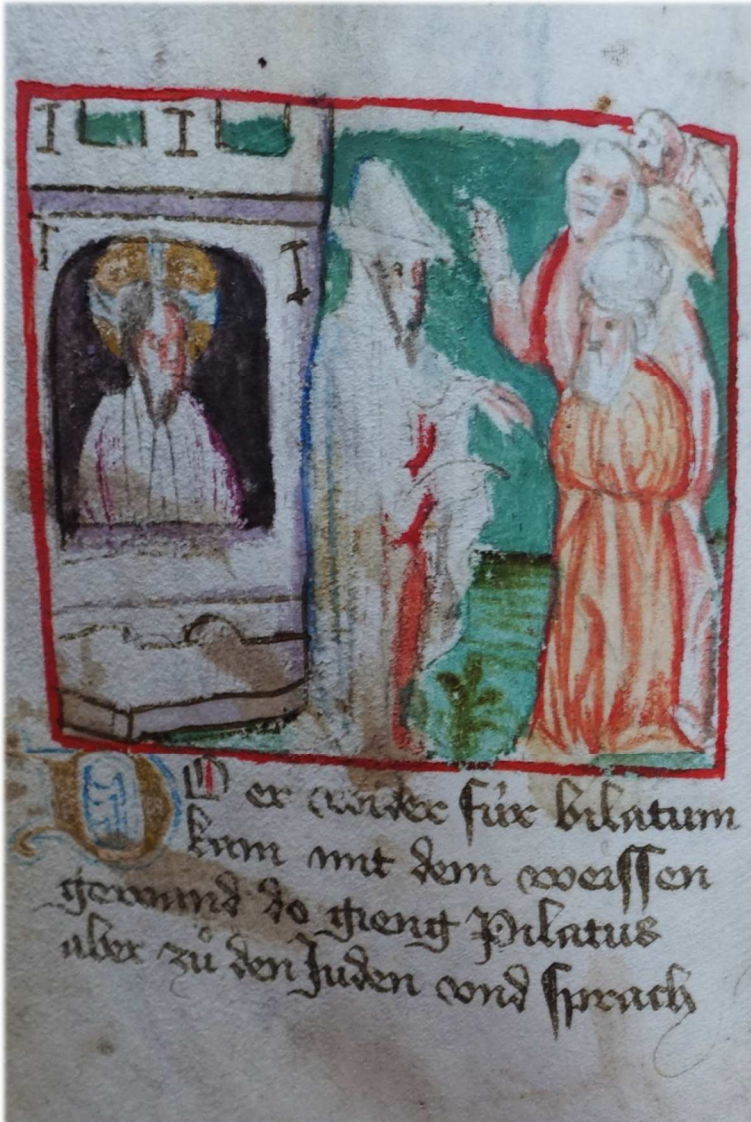 DO er wider für bilatum
kam mit dem weissen
gewand do gieng Pilatus
aber zů den Juden vnd sprach